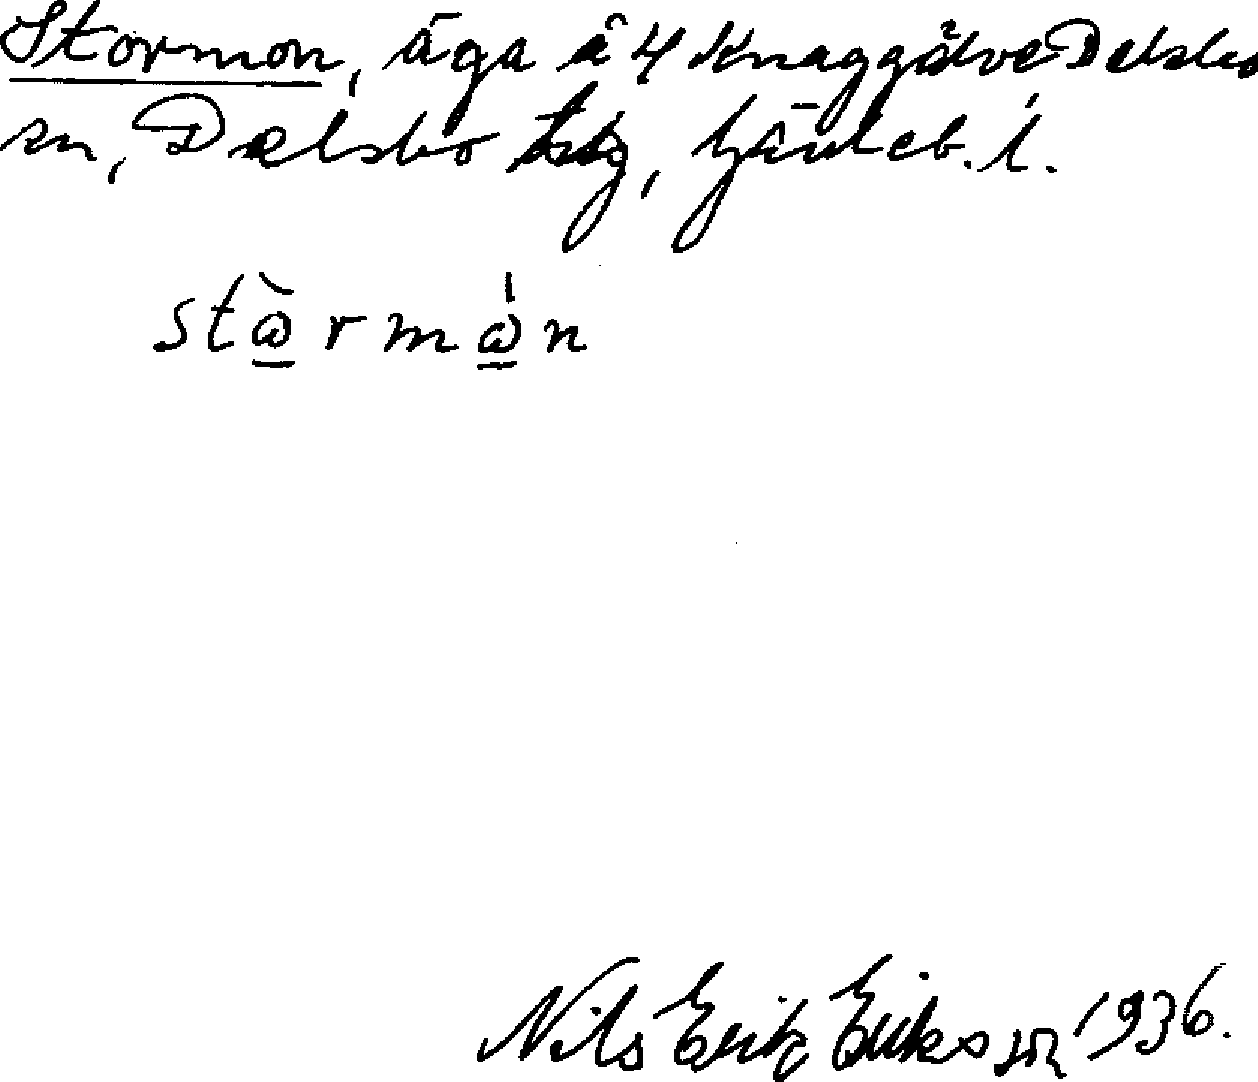 Stormon, äga å 4 Knaggälve Delsbo
sn, Delsbo tsg, Gävleb. l.
stɷ̀rmɷ́n
Nils Erik Eriksson 1936.